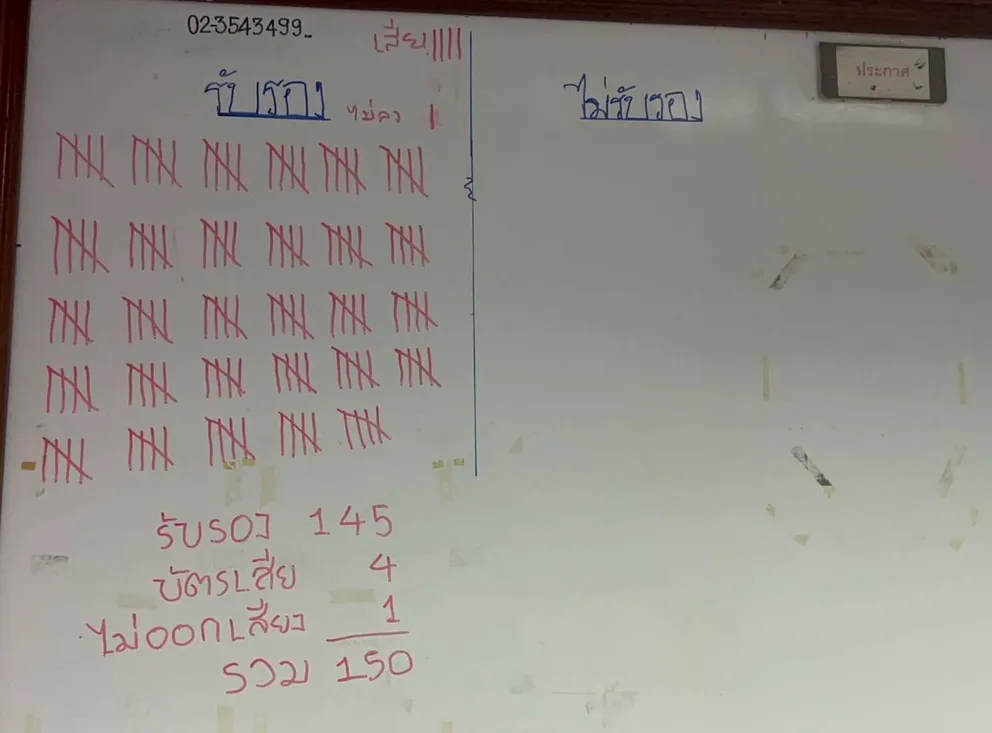 02-3543499..
เสีย ||||
รับรอง
ไม่ลง |
ไม่รับรอง
ประกาศ
รับรอง 145
บัตรเสีย 4
ไม่ออกเสียง 1
รวม 150